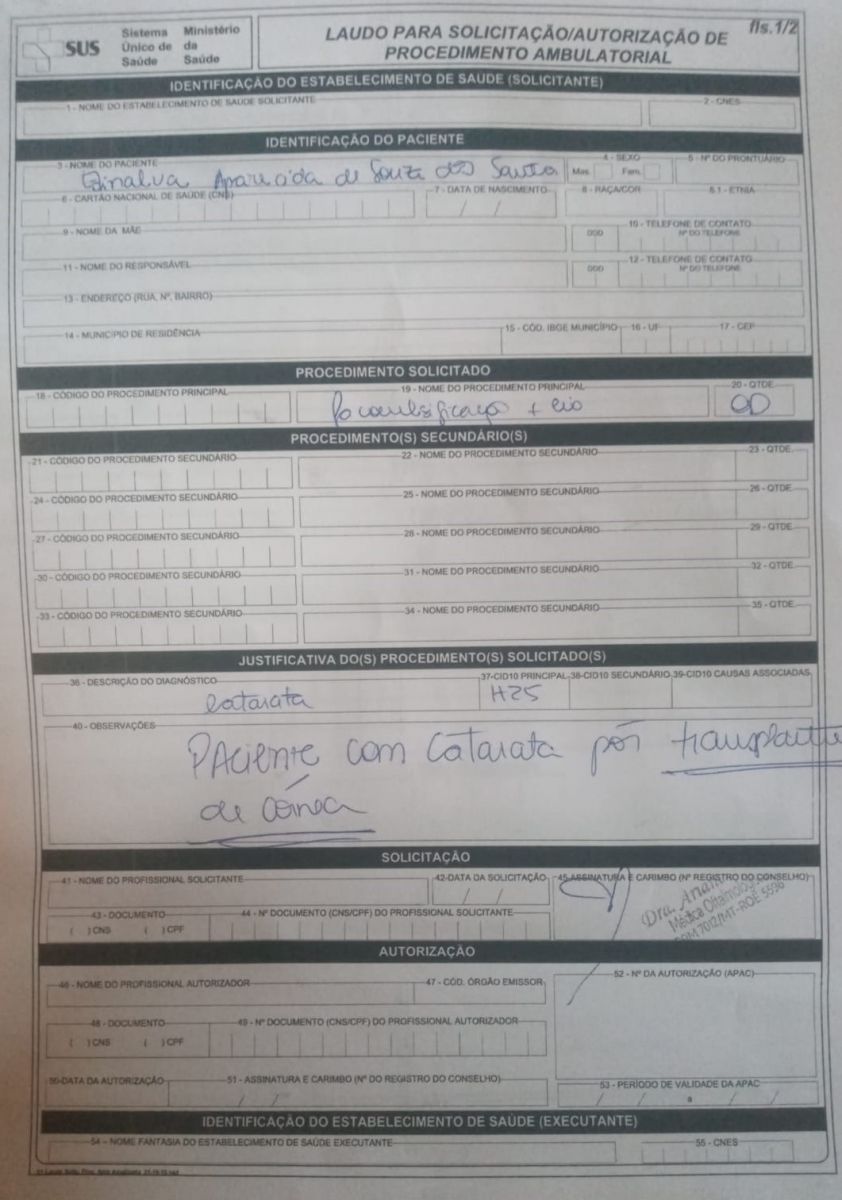 SUS
Sistema Único de Saúde
Ministério da Saúde
LAUDO PARA SOLICITAÇÃO/AUTORIZAÇÃO DE
PROCEDIMENTO AMBULATORIAL
fls.1/2
IDENTIFICAÇÃO DO ESTABELECIMENTO DE SAÚDE (SOLICITANTE)
1 - NOME DO ESTABELECIMENTO DE SAÚDE SOLICITANTE
2 - CNES
IDENTIFICAÇÃO DO PACIENTE
3 - NOME DO PACIENTE
4 - SEXO
5 - Nº DO PRONTUÁRIO
Aparecida de Souza dos Santos
Mas. Fem.
6 - CARTÃO NACIONAL DE SAÚDE (CNS)
7 - DATA DE NASCIMENTO
8 - RAÇA/COR
8.1 - ETNIA
/ /
9 - NOME DA MÃE
10 - TELEFONE DE CONTATO
DDD Nº DO TELEFONE
11 - NOME DO RESPONSÁVEL
12 - TELEFONE DE CONTATO
DDD Nº DO TELEFONE
13 - ENDEREÇO (RUA, Nº, BAIRRO)
14 - MUNICÍPIO DE RESIDÊNCIA
15 - CÓD. IBGE MUNICÍPIO
16 - UF
17 - CEP
PROCEDIMENTO SOLICITADO
18 - CÓDIGO DO PROCEDIMENTO PRINCIPAL
19 - NOME DO PROCEDIMENTO PRINCIPAL
20 - QTDE.
+ lio
OD
PROCEDIMENTO(S) SECUNDÁRIO(S)
21 - CÓDIGO DO PROCEDIMENTO SECUNDÁRIO
22 - NOME DO PROCEDIMENTO SECUNDÁRIO
23 - QTDE.
24 - CÓDIGO DO PROCEDIMENTO SECUNDÁRIO
25 - NOME DO PROCEDIMENTO SECUNDÁRIO
26 - QTDE.
27 - CÓDIGO DO PROCEDIMENTO SECUNDÁRIO
28 - NOME DO PROCEDIMENTO SECUNDÁRIO
29 - QTDE.
30 - CÓDIGO DO PROCEDIMENTO SECUNDÁRIO
31 - NOME DO PROCEDIMENTO SECUNDÁRIO
32 - QTDE.
33 - CÓDIGO DO PROCEDIMENTO SECUNDÁRIO
34 - NOME DO PROCEDIMENTO SECUNDÁRIO
35 - QTDE.
JUSTIFICATIVA DO(S) PROCEDIMENTO(S) SOLICITADO(S)
36 - DESCRIÇÃO DO DIAGNÓSTICO
37-CID10 PRINCIPAL
38-CID10 SECUNDÁRIO
39-CID10 CAUSAS ASSOCIADAS
Catarata
H25
40 - OBSERVAÇÕES
PAciente com Catarata pós transplante
de Córnea
SOLICITAÇÃO
41 - NOME DO PROFISSIONAL SOLICITANTE
42-DATA DA SOLICITAÇÃO
45-ASSINATURA E CARIMBO (Nº REGISTRO DO CONSELHO)
/ /
Dra.
Médica
7012/MT-RQE 5596
43 - DOCUMENTO
44 - Nº DOCUMENTO (CNS/CPF) DO PROFISSIONAL SOLICITANTE
( )CNS ( )CPF
AUTORIZAÇÃO
46 - NOME DO PROFISSIONAL AUTORIZADOR
47 - CÓD. ÓRGÃO EMISSOR
52 - Nº DA AUTORIZAÇÃO (APAC)
48 - DOCUMENTO
49 - Nº DOCUMENTO (CNS/CPF) DO PROFISSIONAL AUTORIZADOR
( )CNS ( )CPF
50-DATA DA AUTORIZAÇÃO
51 - ASSINATURA E CARIMBO (Nº DO REGISTRO DO CONSELHO)
53 - PERÍODO DE VALIDADE DA APAC
/ /
/ / a / /
IDENTIFICAÇÃO DO ESTABELECIMENTO DE SAÚDE (EXECUTANTE)
54 - NOME FANTASIA DO ESTABELECIMENTO DE SAÚDE EXECUTANTE
55 - CNES